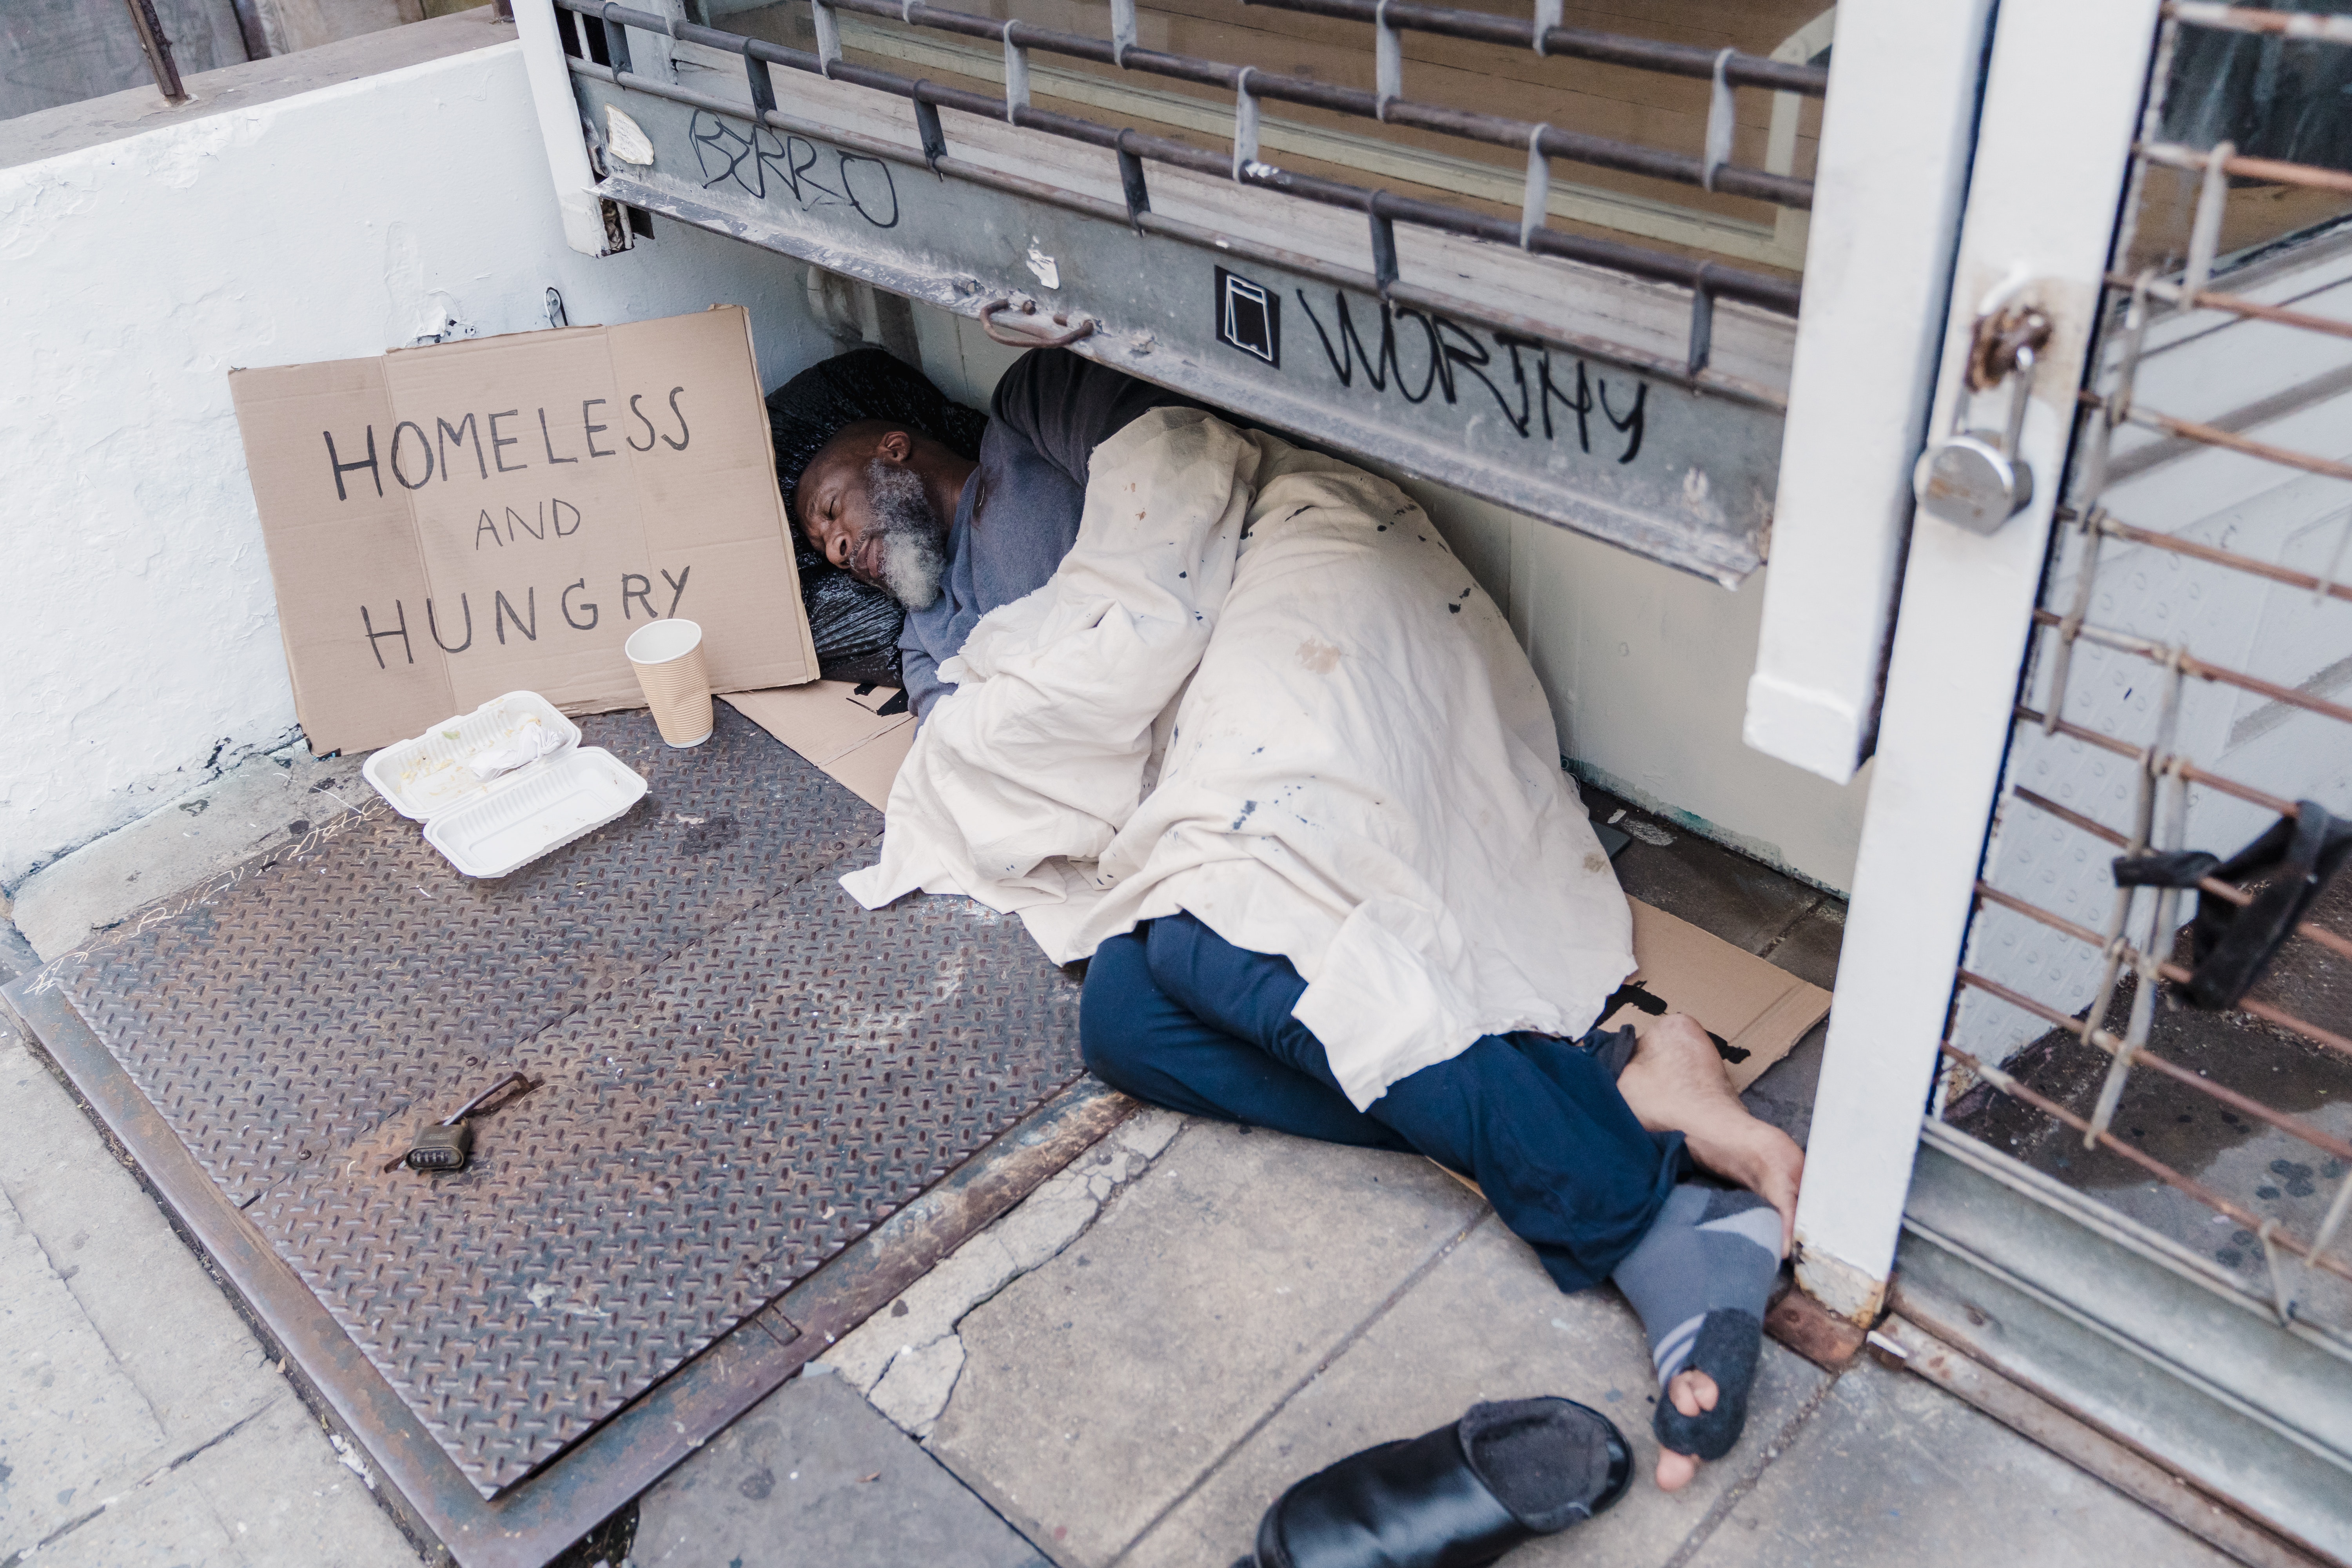 HOMELESS
AND
HUNGRY
WORTHY